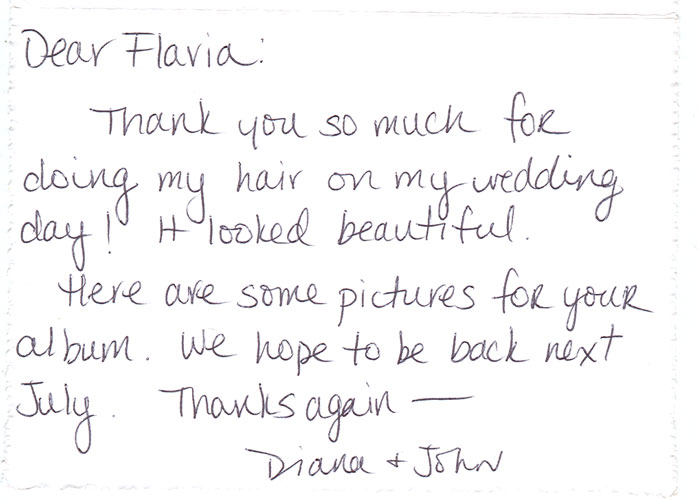 Dear Flavia:
Thank you so much for
doing my hair on my wedding
day! It looked beautiful.
Here are some pictures for your
album. We hope to be back next
July. Thanks again —
Diana + John